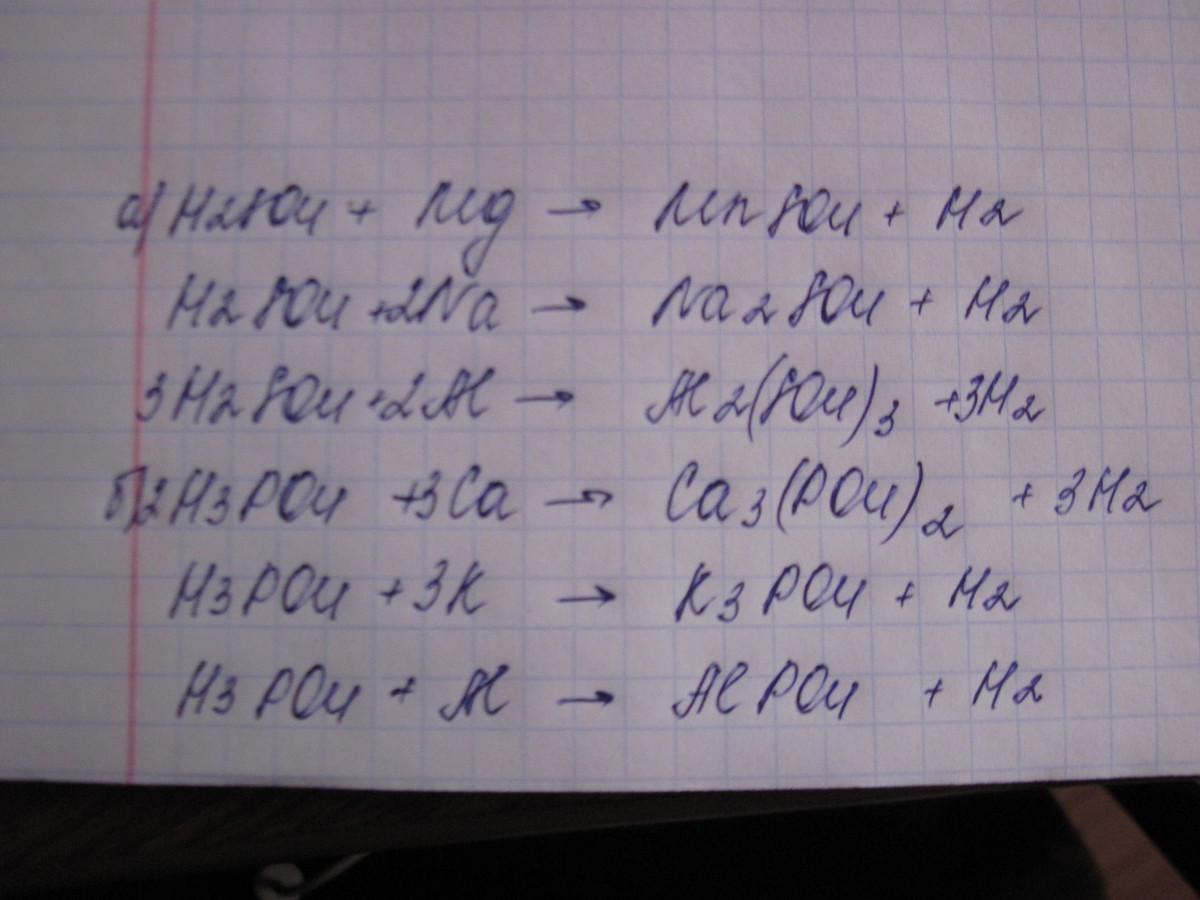 а) H2SO4 + Mg → MnSO4 + H2
H2SO4 + 2Na → Na2SO4 + H2
3H2SO4 + 2Al → Al2(SO4)3 + 3H2
б) 2H3PO4 + 3Ca → Ca3(PO4)2 + 3H2
H3PO4 + 3K → K3PO4 + H2
H3PO4 + Al → AlPO4 + H2